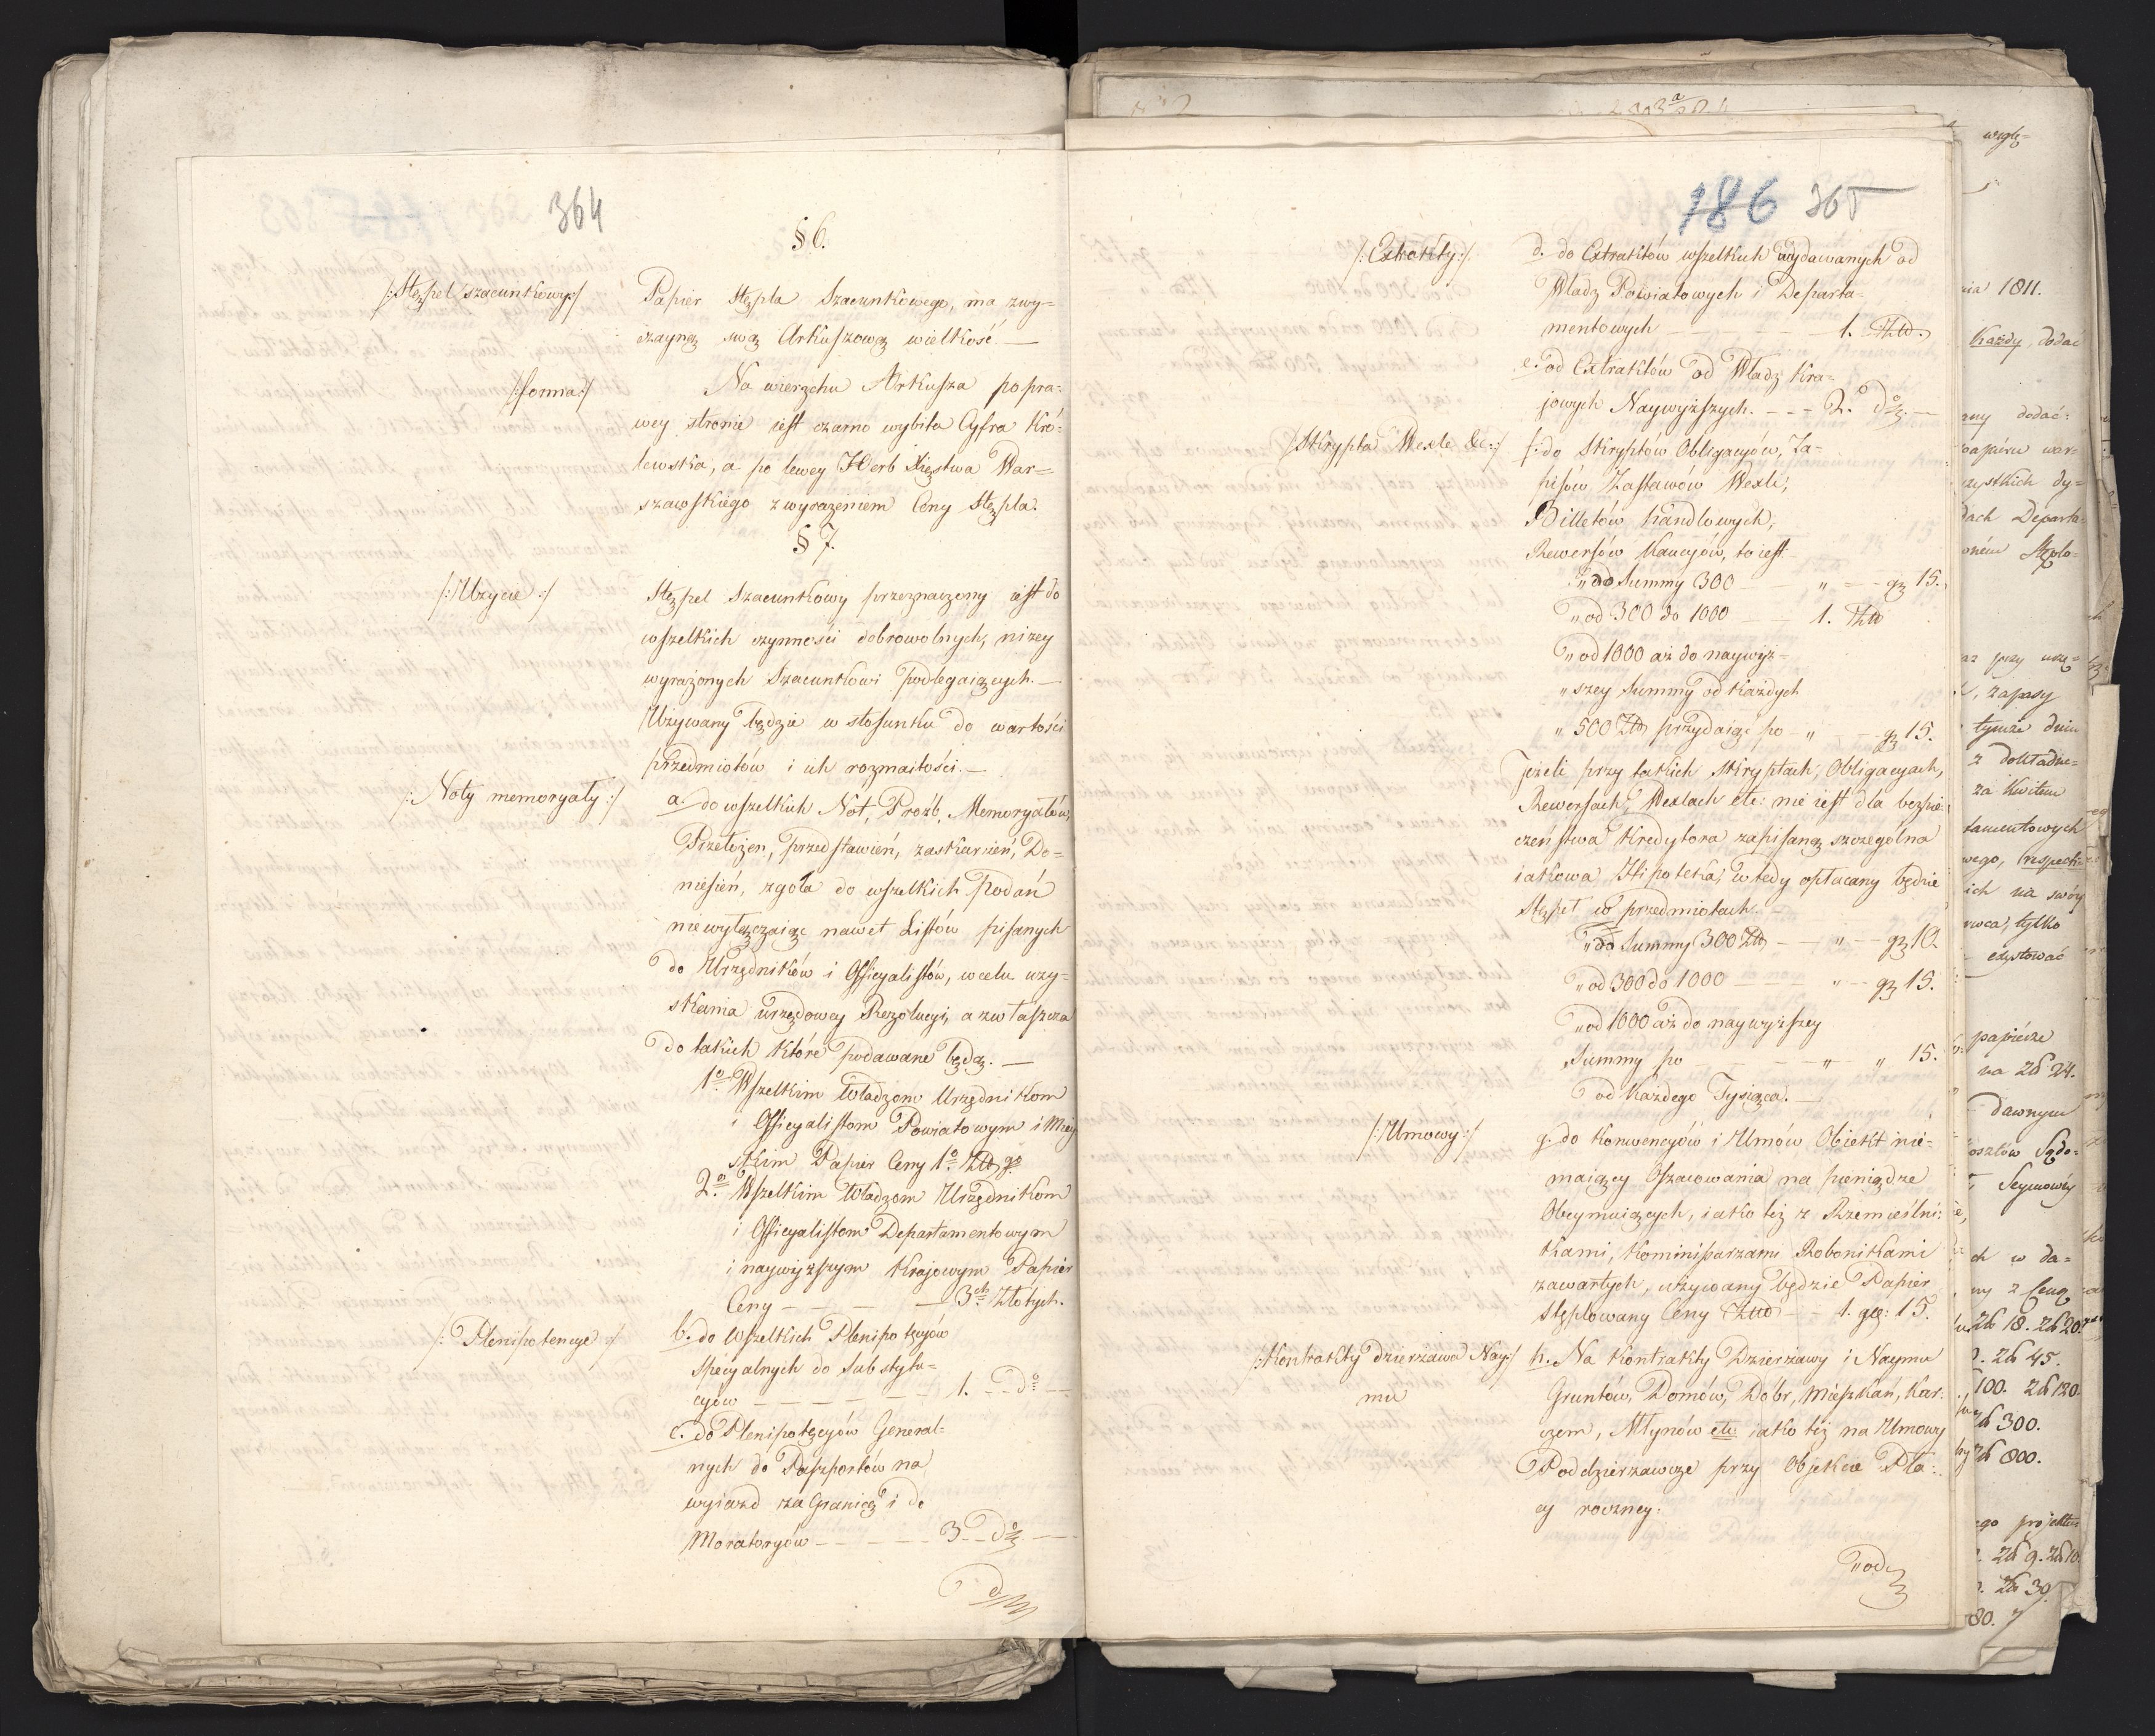 364
§ 6.
/:Stępel szacunkowy:/
Papier Stępla Szacunkowego, ma zwy=
czayną swą Arkuszową wielkość. —
/:forma:/
Na wierzchu Arkusza po pra=
wey stronie iest czarno wybita Cyfra Kró=
lewska, a po lewey Herb Xięstwa War=
szawskiego z wyrażeniem Ceny Stępla.
§ 7.
/:Użycie:/
Stępel Szacunkowy przeznaczony iest do
wszelkich czynności dobrowolnych, niżey
wyrażonych Szacunkowi podlegaiących. —
Używany będzie w stosunku do wartości
przedmiotów i ich rozmaitości. —
/:Noty memoryały:/
a. do wszelkich Not, Prozb, Memoryałów,
Przełożen, przedstawień, zaskarzeń, Do=
niesień, zgoła do wszelkich Podań
niewyłączaiąc nawet Listów pisanych
do Urzędników i Officyalistów, w celu uzy=
skania urzędowey Rezolucyi, a zwłaszcza
do takich które podawane będą. —
1o Wszelkim Władzom Urzędnikom
i Officyalistom Powiatowym i Miey
skim Papier Ceny 1o Złtgo
2o Wszelkim Władzom Urzędnikom
i Officyalistom Departamentowym
i naywyższym Krajowym Papier
Ceny — — — — 3ch Złotych.
/:Plenipotencye:/
b. do Wszelkich Plenipotęcyów
specyalnych do Substytu=
cyów — — — — — 1. — do —
c. do Plenipotęcyów General=
nych do Paszportów na
wyiazd za Granicę i do
Moratoryów — — — — 3 — do —
186 365
/:Extrakty:/
d. do Extraktów wszelkich wydawanych od
Władz Powiatowych i Departa=
mentowych — — — — 1. Złt.
e. od Extraktów od Władz Kra=
jowych Naywyższych. — — — 2. do —
/:Skrypta Wexle &c:/
f. do Skryptów Obligacyów, Za=
pisów Zastawów Wexli,
Billetów handlowych,
Rewersów Kaucyów, to iest
„ do Summy 300 — „ — — gr 15.
„ od 300 do 1000 — — 1. Złt
„ od 1000 aż do naywyż=
„ szey Summy od każdych
„ 500 Złt przydaiąc po „ — — gr 15.
Jeżeli przy takich Skryptach, Obligacyach,
Rewersach, Wexlach etc: nie iest dla bezpie=
czeństwa Kredytora zapisaną szczególna
iakowa Hipoteka, wtedy opłacany będzie
Stępel w przedmiotach. —
„ do Summy 300 Złt — — „ — gr 10.
„ od 300 do 1000 — — — „ — gr 15.
„ od 1000 aż do naywyższey
Summy po — — — „ „ 15.
od każdego Tysiąca. —
/:Umowy:/
g. do Konwencyów i Umów Obiekt nie=
maiącey Oszacowania na pieniądze
Obeymuiących, iako też z Rzemieślni=
kami, Kominiarzami Robotnikami
zawartych, używany będzie Papier
stęplowany Ceny Złt — 1. gr: 15.
/:Kontrakty dzierżawa Nay:/
mu
h. Na Kontrakty Dzierżawy i Naymu
Gruntów, Domów, Dobr, Mieszkań, Kar=
czem, Młynów etc iako też na Umowy
Poddzierzawcze przy Objekcie Pła=
cy roczney:
„ od
węglę=
1811.
Każdy, dodać
dodać:
papieru war=
dy=
Departa=
przy
zapasy
tymże dniu
z dokładne=
za kwitem
tamentowych
wego, respecti=
ich na swóy
tylko
exystować
papierze
na 26 24.
dawnym
Sądo=
Seymowy
w da=
z Ceną
26 18. 26 20.
26 45.
100. 26 120.
26 300.
26 800.
projektu
26 9. 26 10.
26 30.
80.